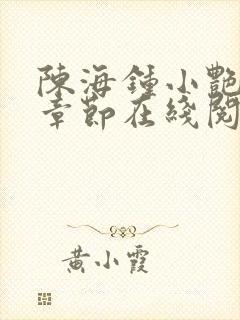 陳海鍾小艷
章節在綫閱
黃小霞